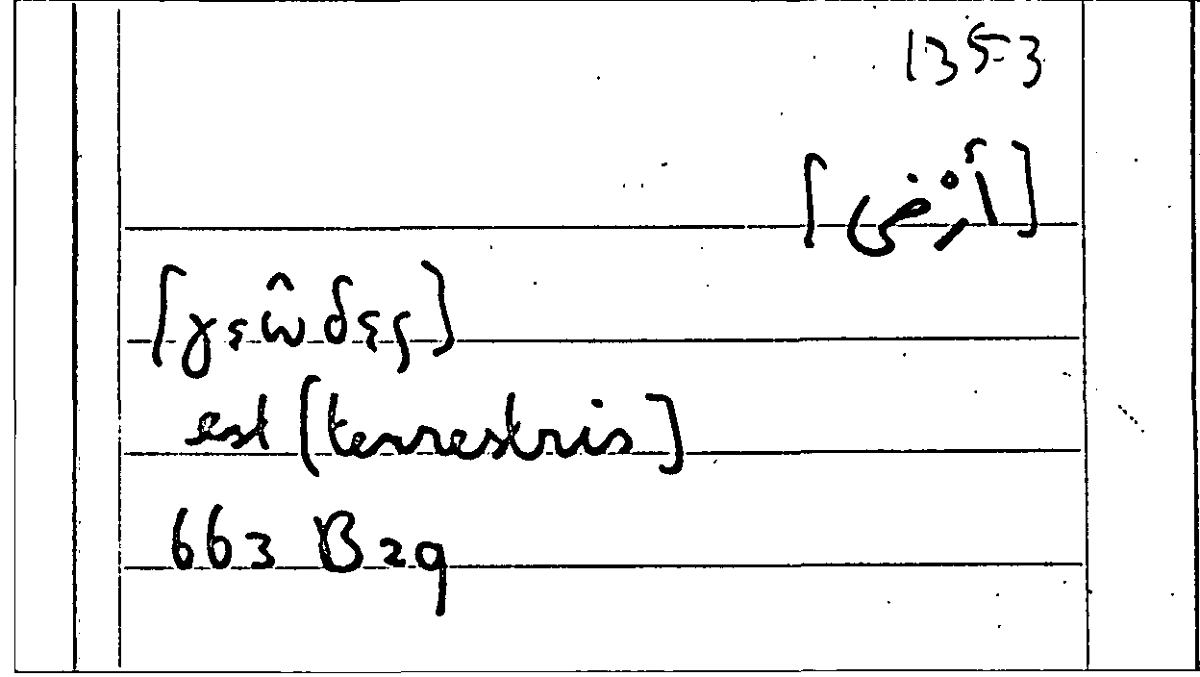 1353
[أَرْض]
[γεῶδες]
est [terrestris]
663 B29